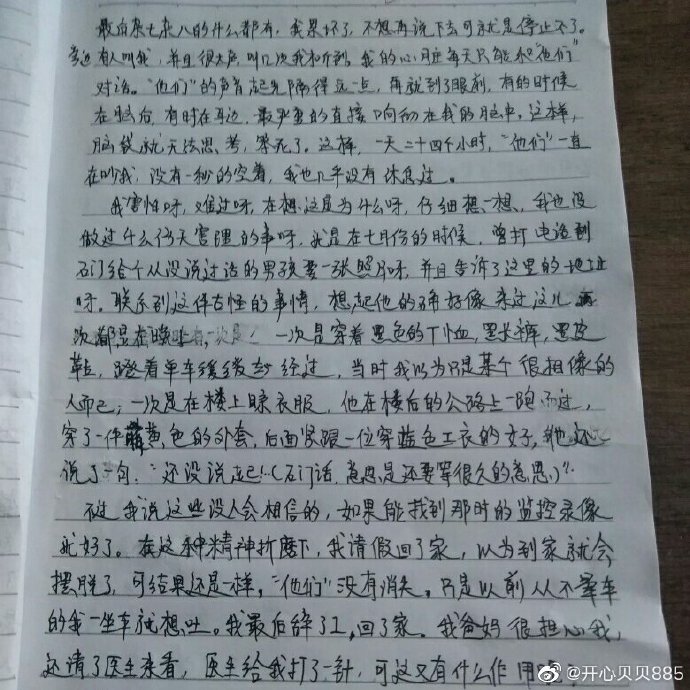 最后杂七杂八的什么都有，我累坏了，不想再说下去可就是停止不了。
旁边有人叫我，并且很大声叫几次我才听到，我的心脏每天只能和“他们”
对话。“他们”的声音起先隔得远一点，再就到了眼前，有的时候
在脑后，有时在耳边，最严重的直接响彻在我的脑中。这样，
脑袋就无法思考，笨死了。这样，一天二十四个小时，“他们”一直
在吵我，没有一秒的空着，我也几乎没有休息过。
我害怕呀，难过呀，在想这是为什么呀，仔细想一想，我也没
做过什么伤天害理的事呀，就是在七月份的时候，曾打电话到
石门给个从没说过话的男孩要一张照片呀，并且告诉了这里的地址
呀。联系到这件古怪的事情，想起他的确好像来过这儿
次都是在晚上，一次是穿着黑色的T恤，黑长裤，黑皮
鞋，蹬着单车缓缓经过，当时我以为只是某个很相像的
人而已；一次是在楼上晾衣服，他在楼后的公路上一跑而过，
穿了一件黄色的外套，后面紧跟一位穿蓝色工衣的女子，她还
说了句，“还没说起！（石门话，意思是还要等很久的意思）”。
不过我说这些没人会相信的，如果能找到那时的监控录像
就好了。在这种精神折磨下，我请假回了家，以为到家就会
摆脱了，可结果还是一样，“他们”没有消失，只是以前从不晕车
的我一坐车就想吐。我最后辞了工，回了家。我爸妈很担心我，
还请了医生来看，医生给我打了一针，可这又有什么作用
@开心贝贝885